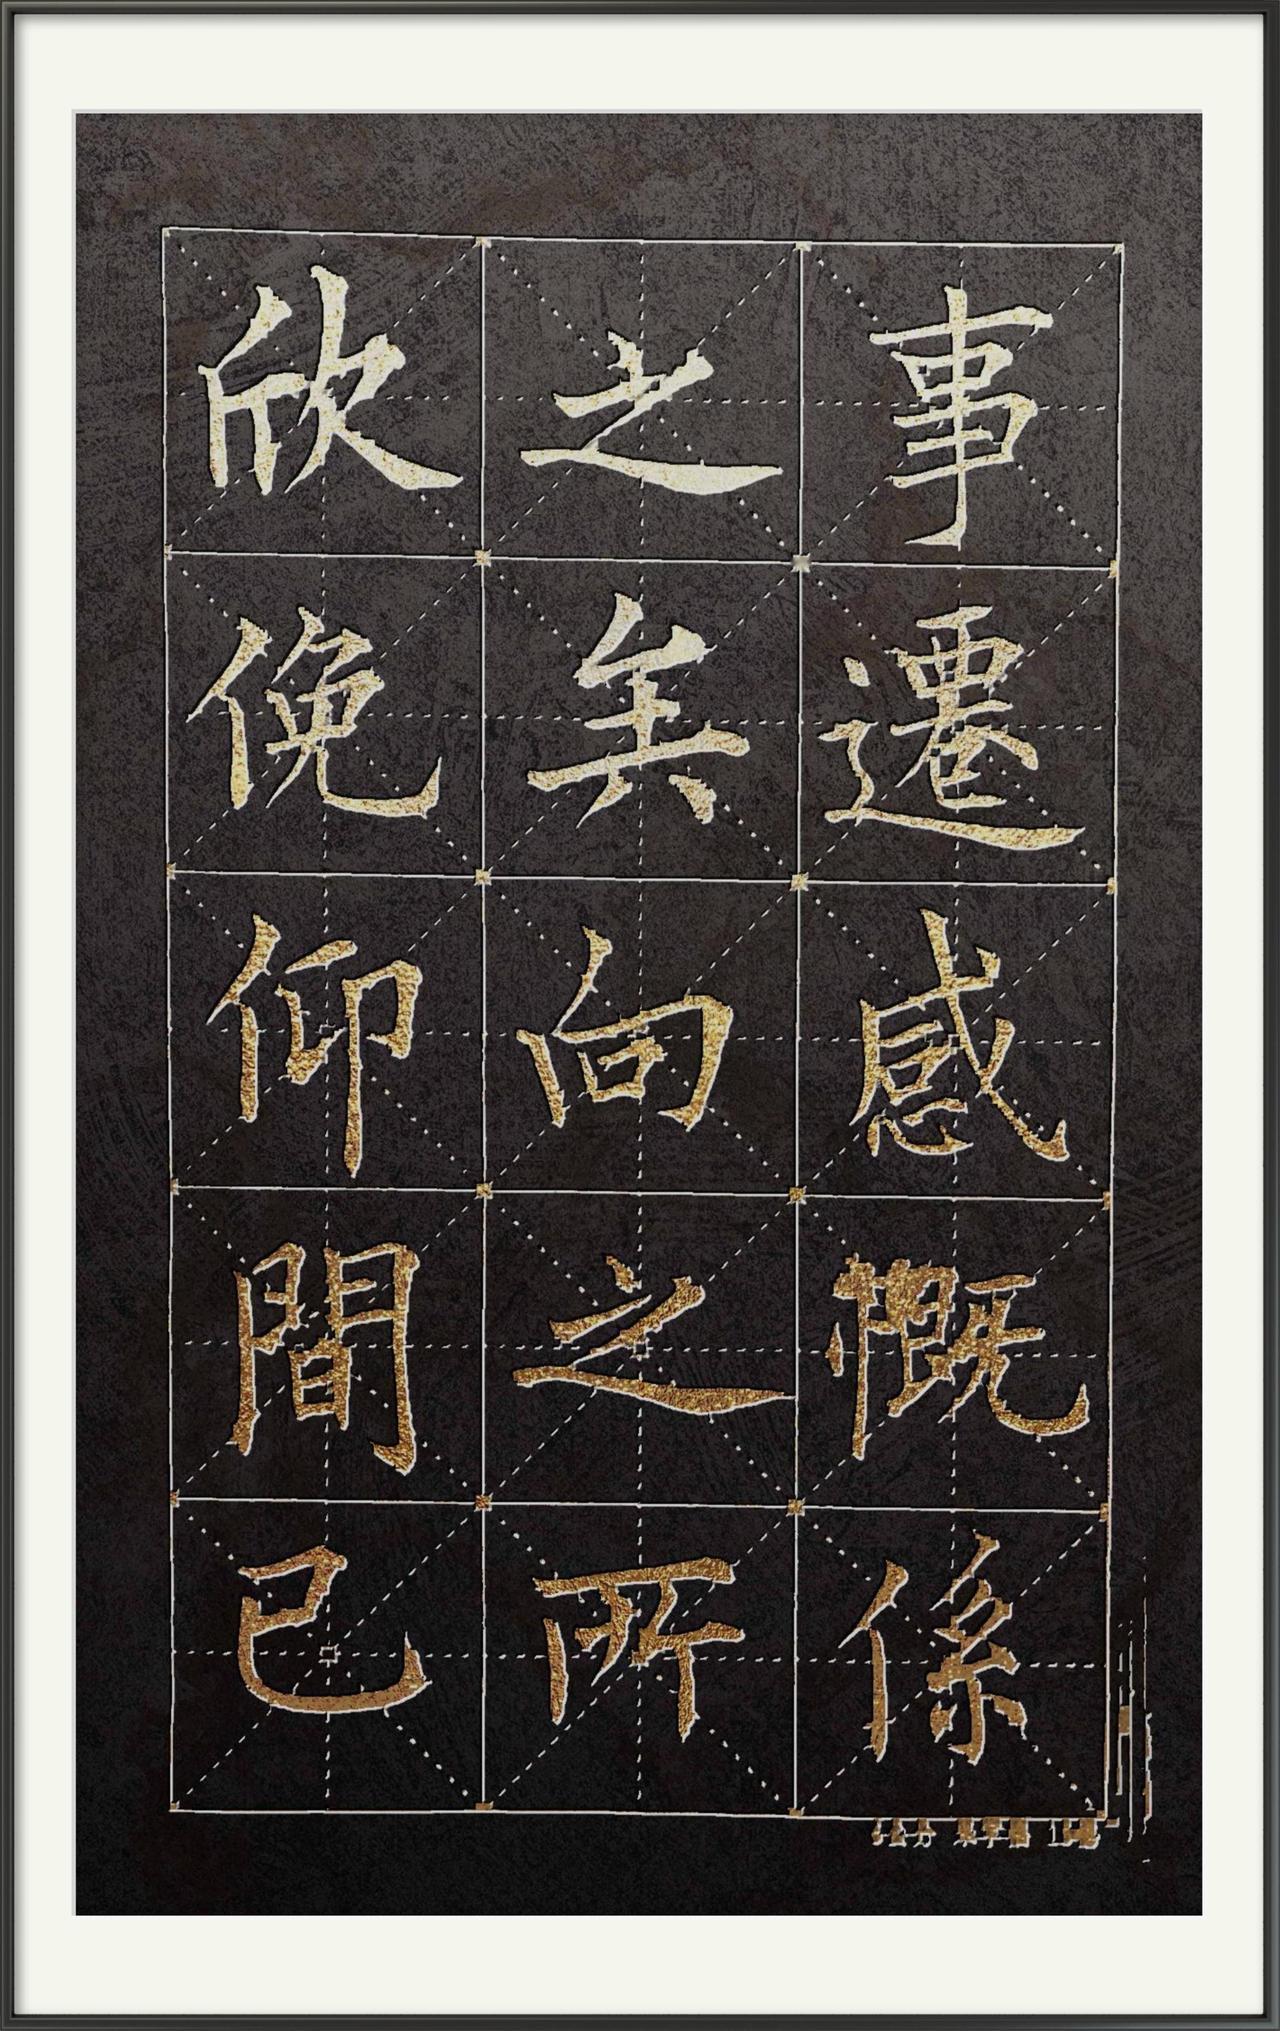 事遷感慨係
之矣向之所
欣俛仰間已